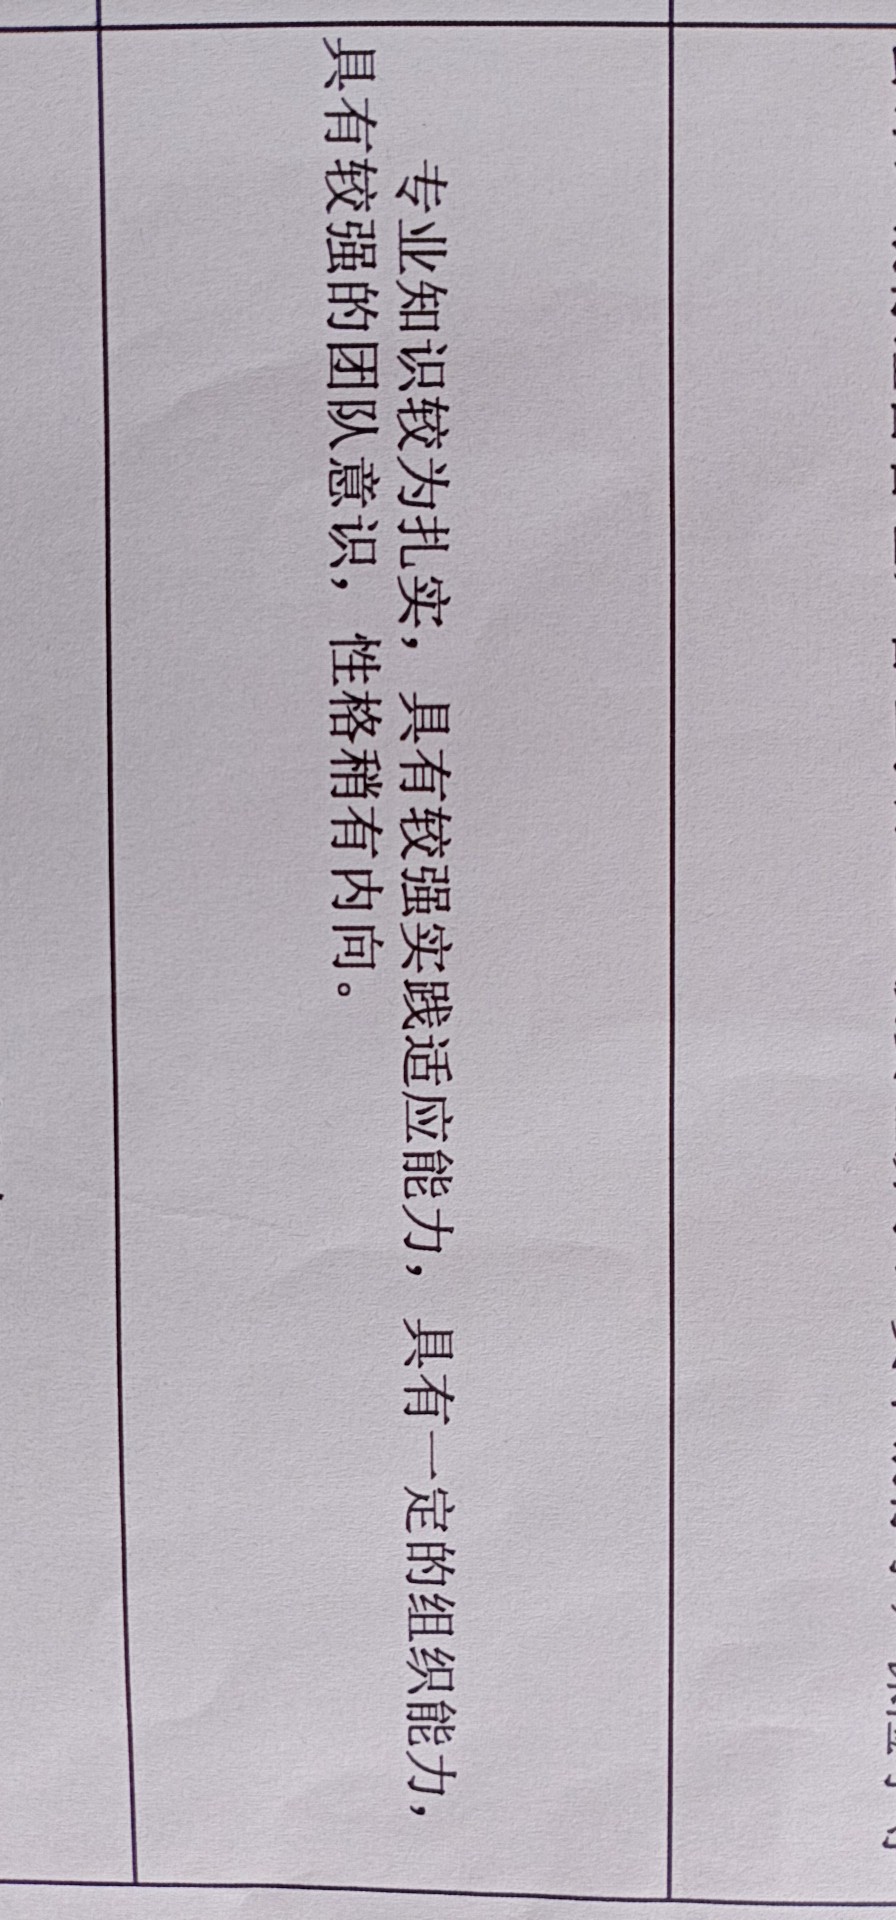 专业知识较为扎实，具有较强实践适应能力，具有一定的组织能力，
具有较强的团队意识，性格稍有内向。